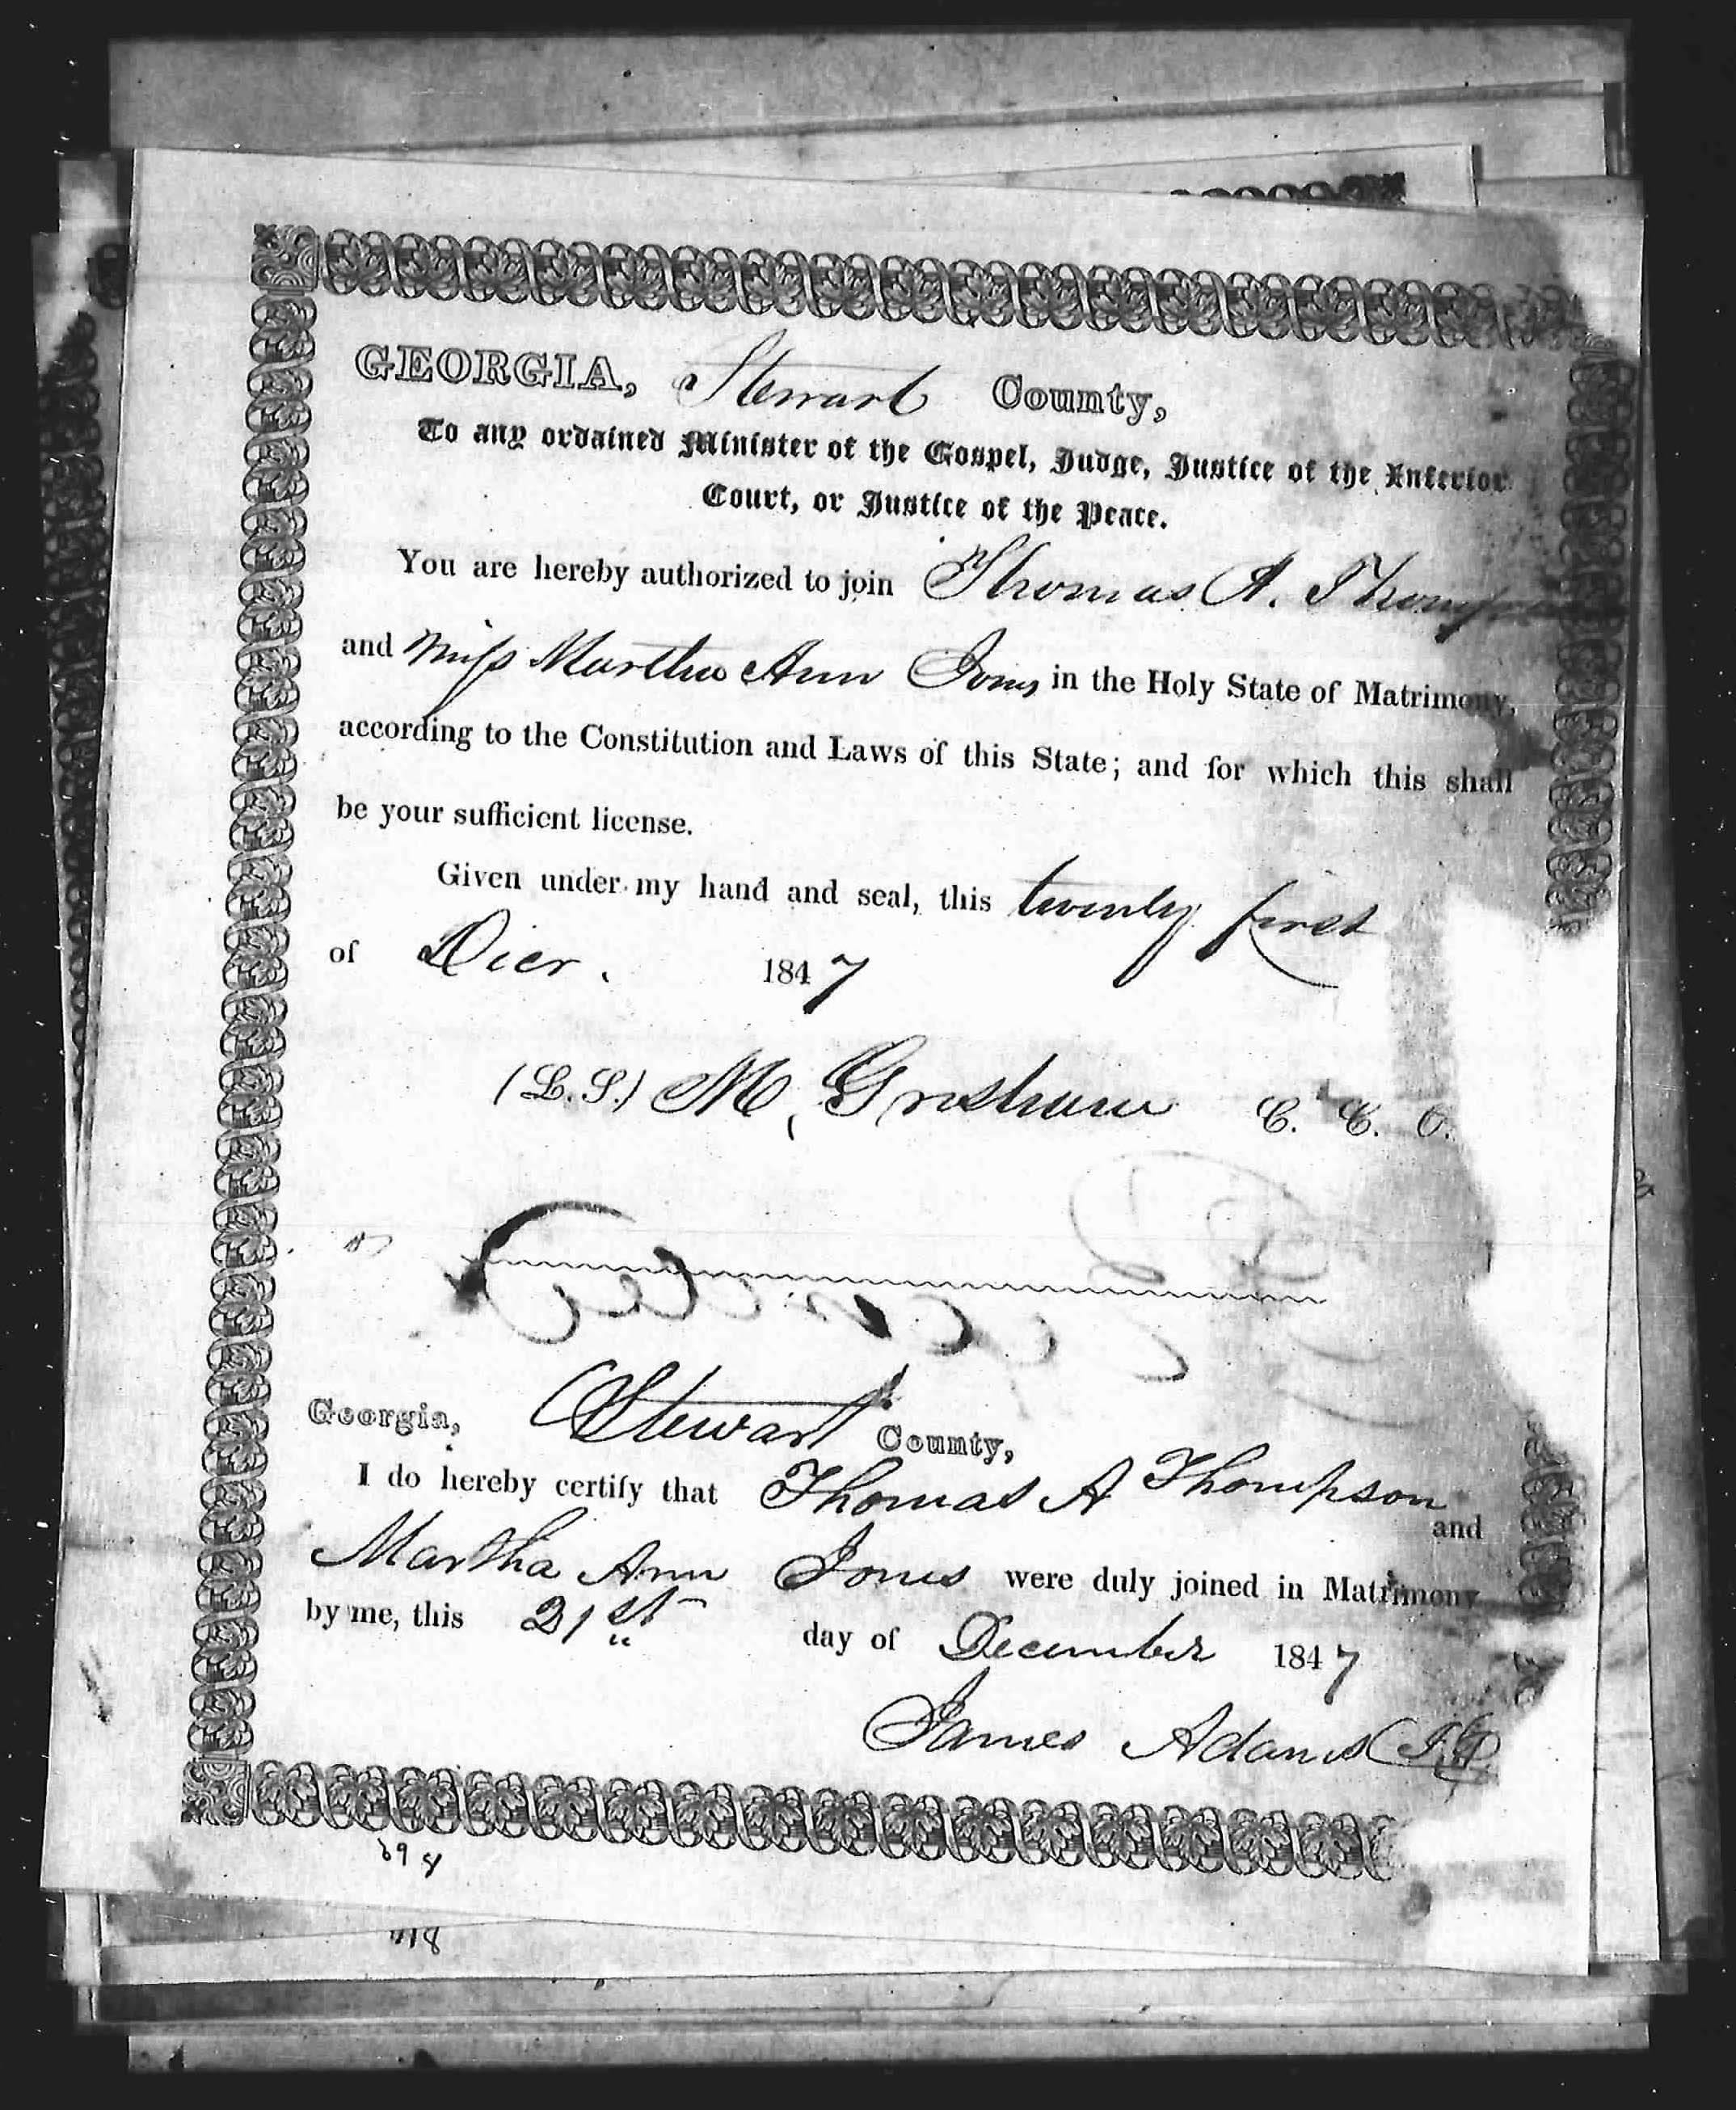 GEORGIA, Stewart County,
To any ordained Minister of the Gospel, Judge, Justice of the Inferior
Court, or Justice of the Peace.
You are hereby authorized to join Thomas A. Thompson
and Miss Martha Ann Jones in the Holy State of Matrimony,
according to the Constitution and Laws of this State; and for which this shall
be your sufficient license.
Given under my hand and seal, this twenty first
of Decr. 1847
(L.S.) M. Gresham C. C. O.
Georgia, Stewart County,
I do hereby certify that Thomas A Thompson and
Martha Ann Jones were duly joined in Matrimony
by me, this 21st day of December 1847
James Adams J.P.